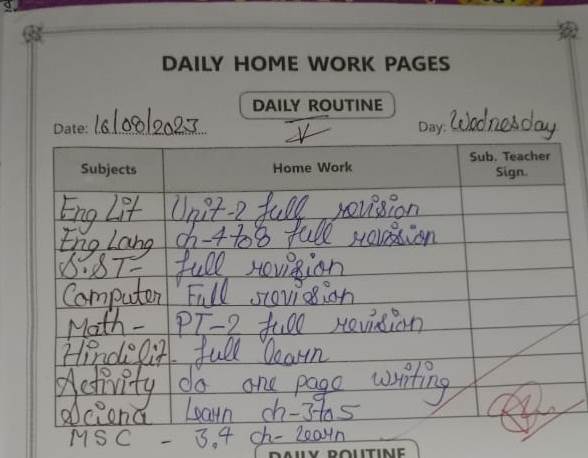 2.
DAILY HOME WORK PAGES
DAILY ROUTINE
Date: 16/08/2023 Day: Wednesday
Subjects Home Work Sub. Teacher Sign.
Eng Lit Unit-2 full revision
Eng Lang ch-4 to 8 full revision
S.ST- full revision
Computer Full revision
Math - PT-2 full revision
Hindi lit- full learn
Activity do one page writing
Science Learn ch-3 to 5
MSC - 3,4 ch- learn
DAILY ROUTINE